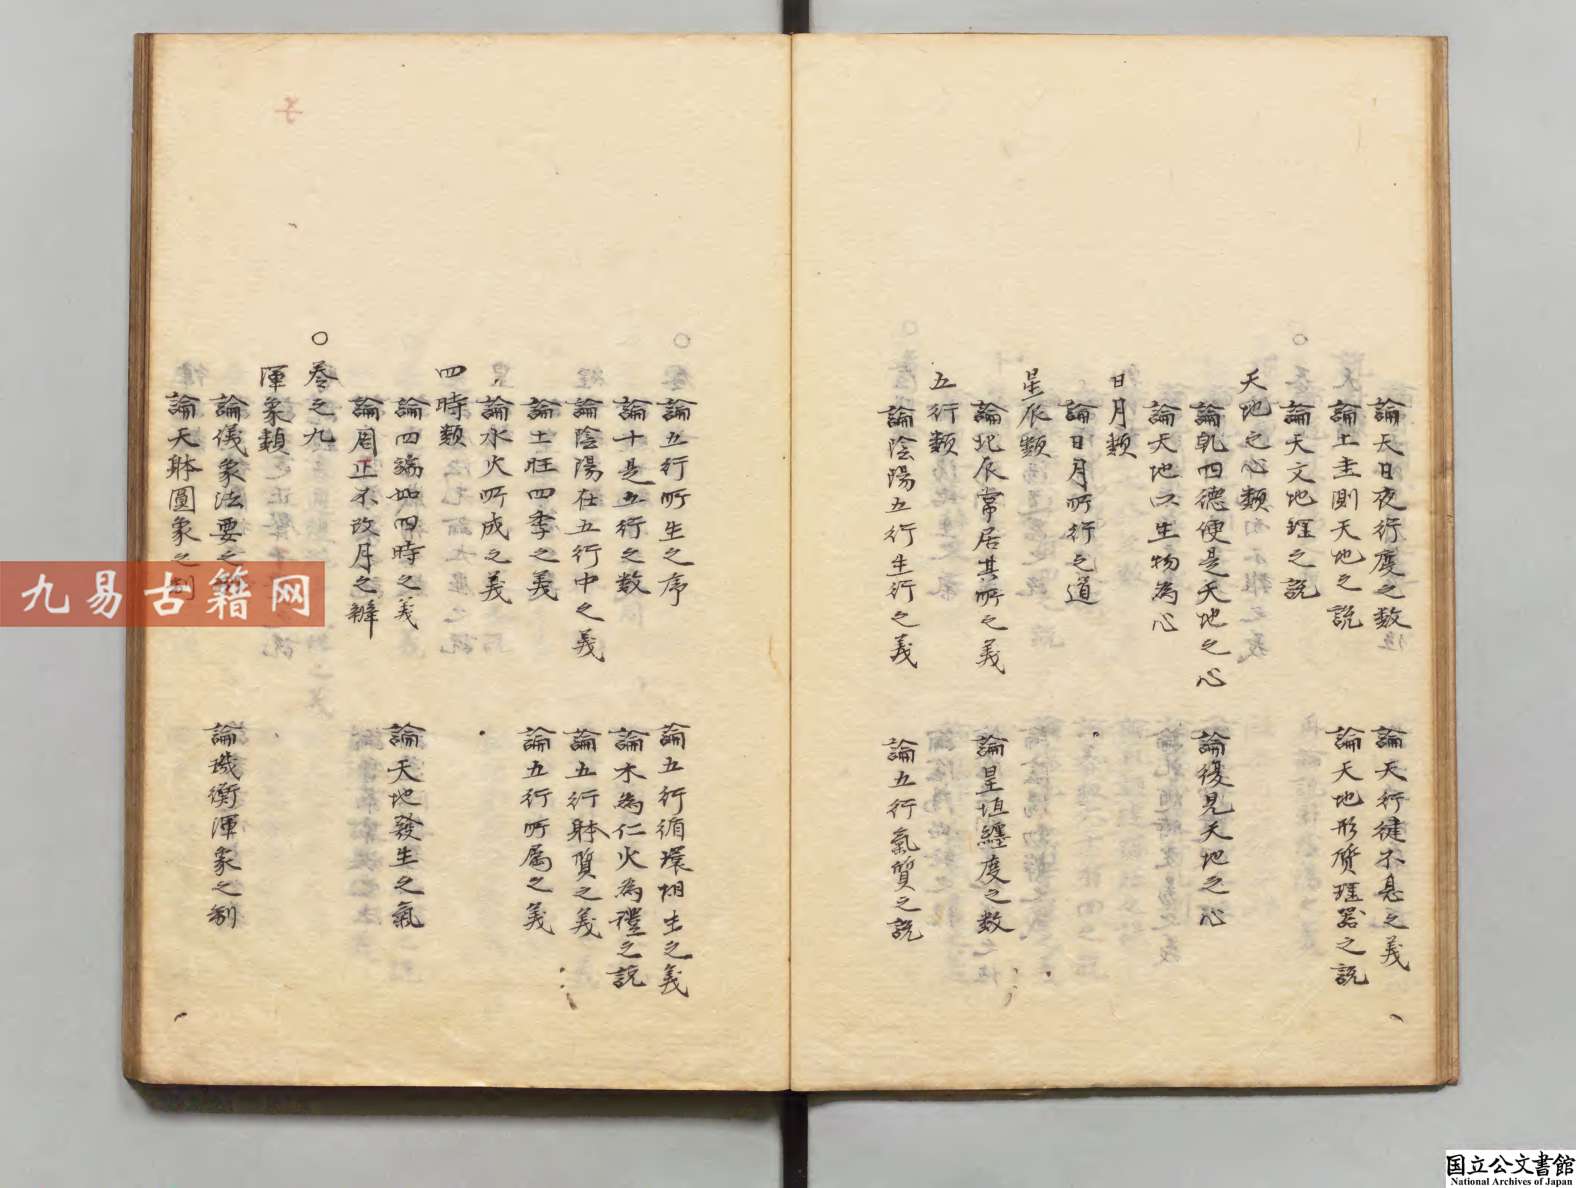 論天日夜行度之数
論天行健不息之義
論土圭測天地之説
論天地形質理器之説
論天文地理之説
天地之心類
論乾四德便是天地之心
論復見天地之心
論天地以生物為心
日月類
論日月所行之道
星辰類
論北辰常居其所之義
論星垣纏度之数
五行類
論陰陽五行生行之義
論五行氣質之説
論五行所生之序
論五行循環相生之義
論十是五行之数
論木為仁火為禮之説
論陰陽在五行中之義
論五行躰質之義
論土旺四季之義
論五行所属之義
論水火所成之義
四時類
論四端如四時之義
論天地發生之氣
論周正不改月之辨
○巻之九
渾象類
論儀象法要之
論璣衡渾象之制
論天躰圓象之制
九易古籍网
国立公文書館
National Archives of Japan